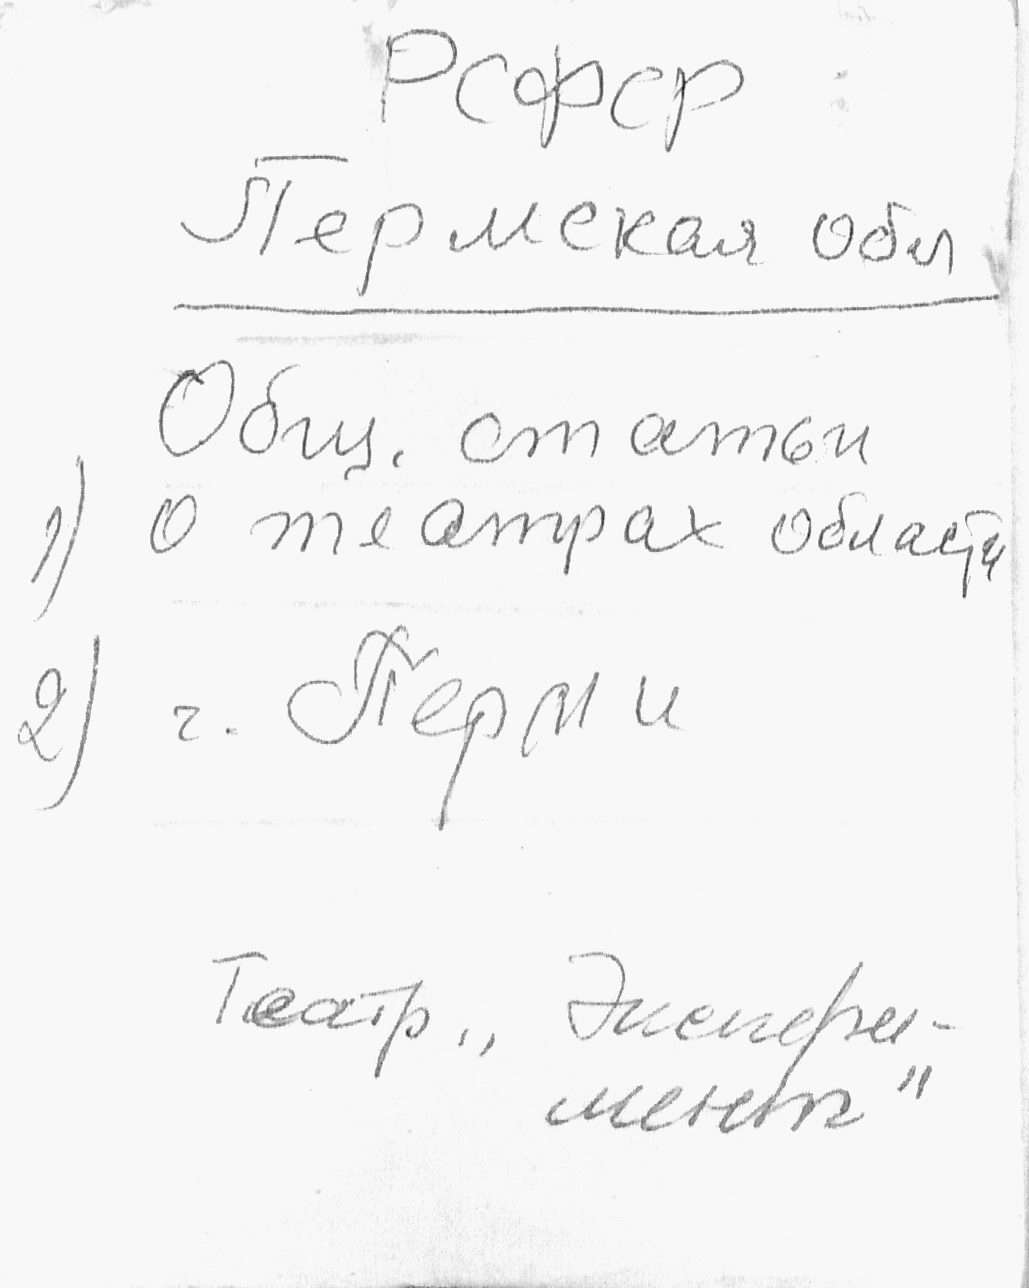 РСФСР
Пермская обл
Общ. статьи
1) о театрах области
2) г. Перми
Театр „Экспери-
мент"